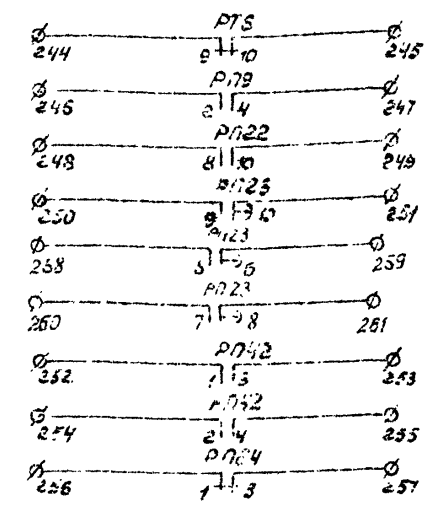 РТ5
244 9 10 245
РП9
246 2 4 247
РП22
248 8 10 249
РП23
250 9 10 251
РП23
258 5 6 259
РП23
260 7 8 261
РП42
252 1 3 253
РП42
254 2 4 255
РП64
256 1 3 257